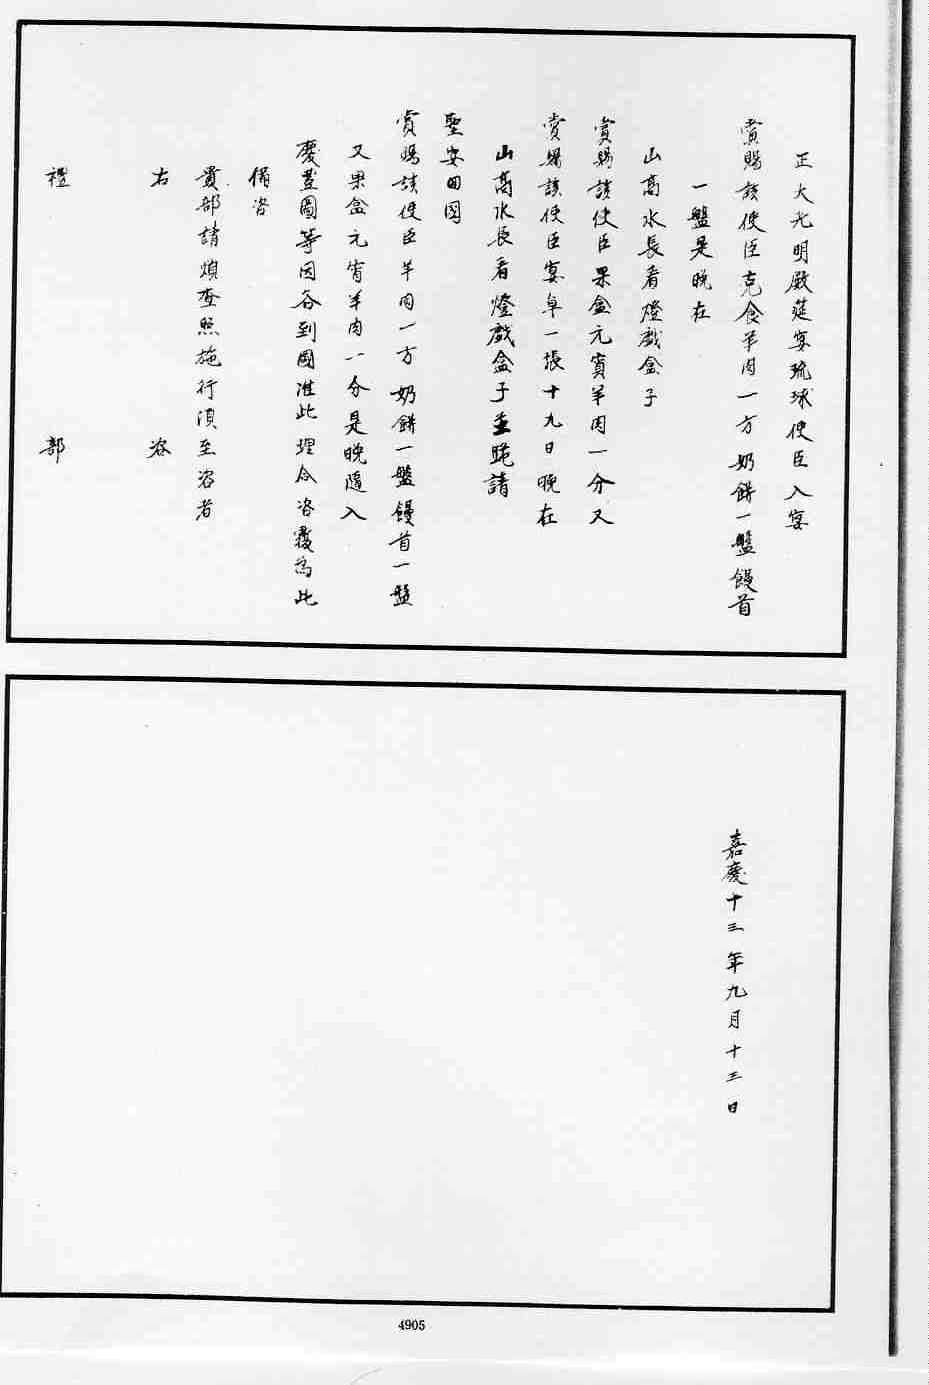 正大光明殿筵宴琉球使臣入宴
賞賜該使臣克食羊肉一方奶餅一盤饅首
一盤是晚在
山高水長看燈戲盒子
賞賜該使臣果盒元宵羊肉一分又
賞賜該使臣宴卓一張十九日晚在
山高水長看燈戲盒子並跪請
聖安回國
賞賜該使臣羊肉一方奶餅一盤饅首一盤
又果盒元宵羊肉一分是晚隨入
慶豊圖等因各到國准此理合咨覆為此
備咨
貴部請煩查照施行須至咨者
右咨
禮部
嘉慶十三年九月十三日
4905